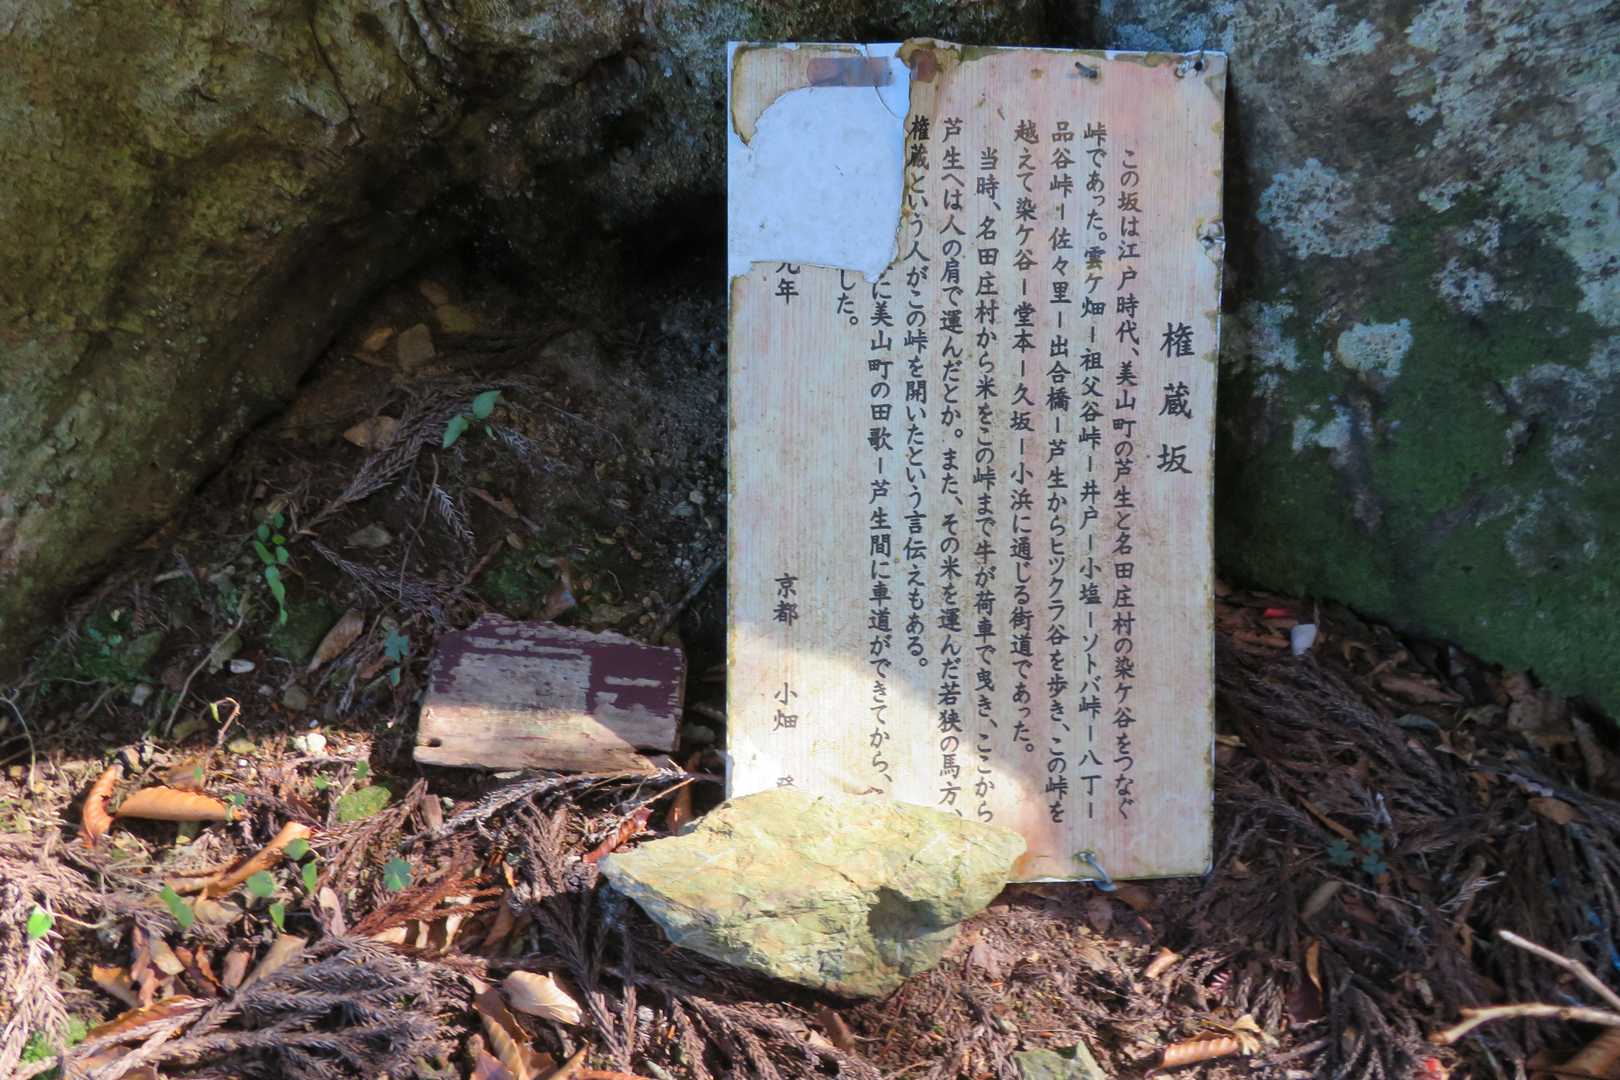 権蔵坂
この坂は江戸時代、美山町の芦生と名田庄村の染ケ谷をつなぐ
峠であった。雲ケ畑ー祖父谷峠ー井戸ー小塩ーソトバ峠ー八丁ー
品谷峠ー佐々里ー出合橋ー芦生からヒツクラ谷を歩き、この峠を
越えて染ケ谷ー堂本ー久坂ー小浜に通じる街道であった。
当時、名田庄村から米をこの峠まで牛が荷車で曵き、ここから
芦生へは人の肩で運んだとか。また、その米を運んだ若狭の馬方、
権蔵という人がこの峠を開いたという言伝えもある。
に美山町の田歌ー芦生間に車道ができてから、
した。
元年 京都 小畑